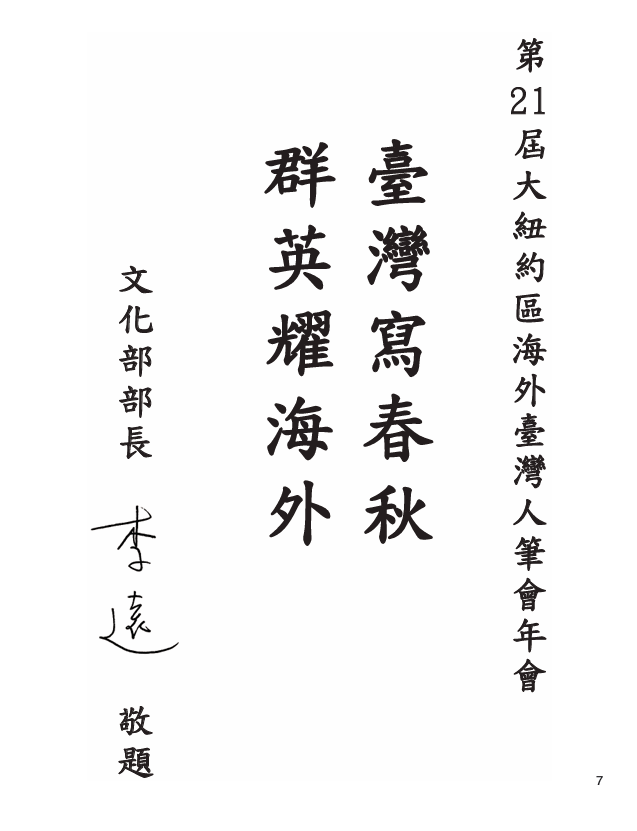 第21屆大紐約區海外臺灣人筆會年會
臺灣寫春秋
群英耀海外
文化部部長 李遠 敬題
7